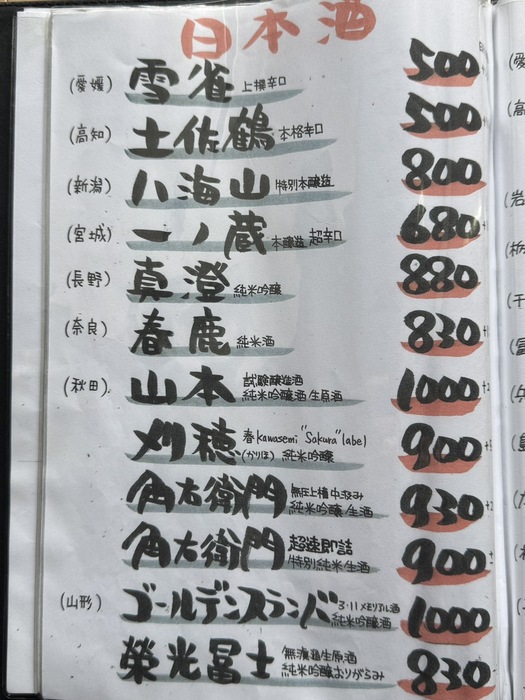 日本酒
(愛媛) 雪雀 上撰辛口 500
(高知) 土佐鶴 本格辛口 500
(新潟) 八海山 特別本醸造 800
(宮城) 一ノ蔵 本醸造 超辛口 680
(長野) 真澄 純米吟醸 880
(奈良) 春鹿 純米酒 830
(秋田) 山本 試験醸造酒 純米吟醸酒 生原酒 1000
刈穂 春kawasemi "Sakura" label (かりほ) 純米吟醸 900
角右衛門 無圧上槽中汲み 純米吟醸 生酒 930
角右衛門 超速即詰 特別純米 生酒 900
(山形) ゴールデンスランバ 3・11メモリアル酒 純米吟醸酒 1000
榮光冨士 無濾過生原酒 純米吟醸おりがらみ 830